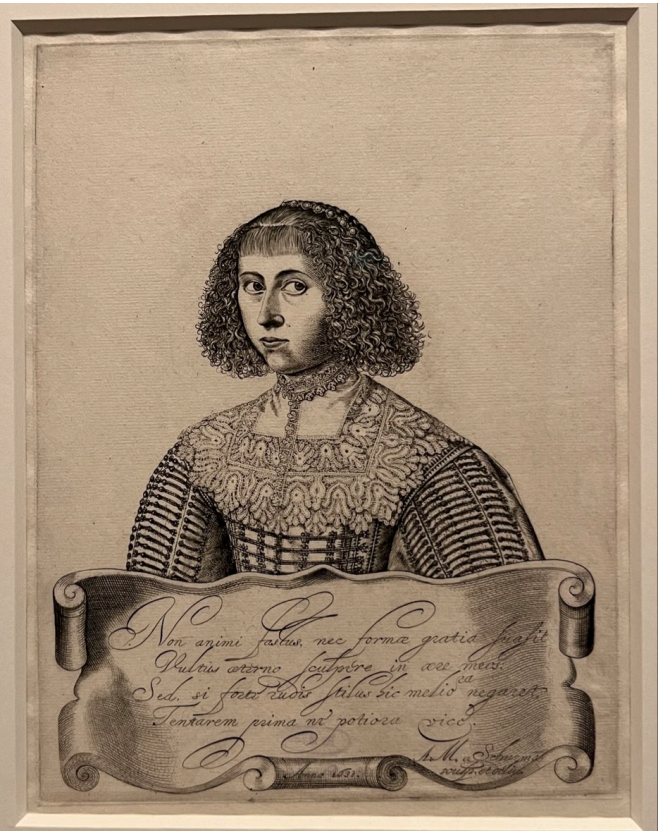 Non animi fastus, nec formæ gratia suasit
Vultus æterno sculpere in ære meos:
Sed, si forte rudis stilus hic meliora negaret,
Tentarem prima ne potiora vice.
A. M. a Schurman
Anno 1633.